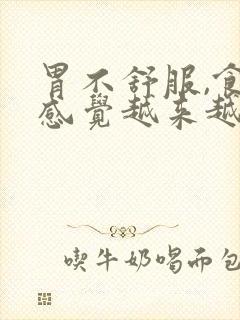 胃不舒服,食
感覺越来越
喫牛奶喝而包